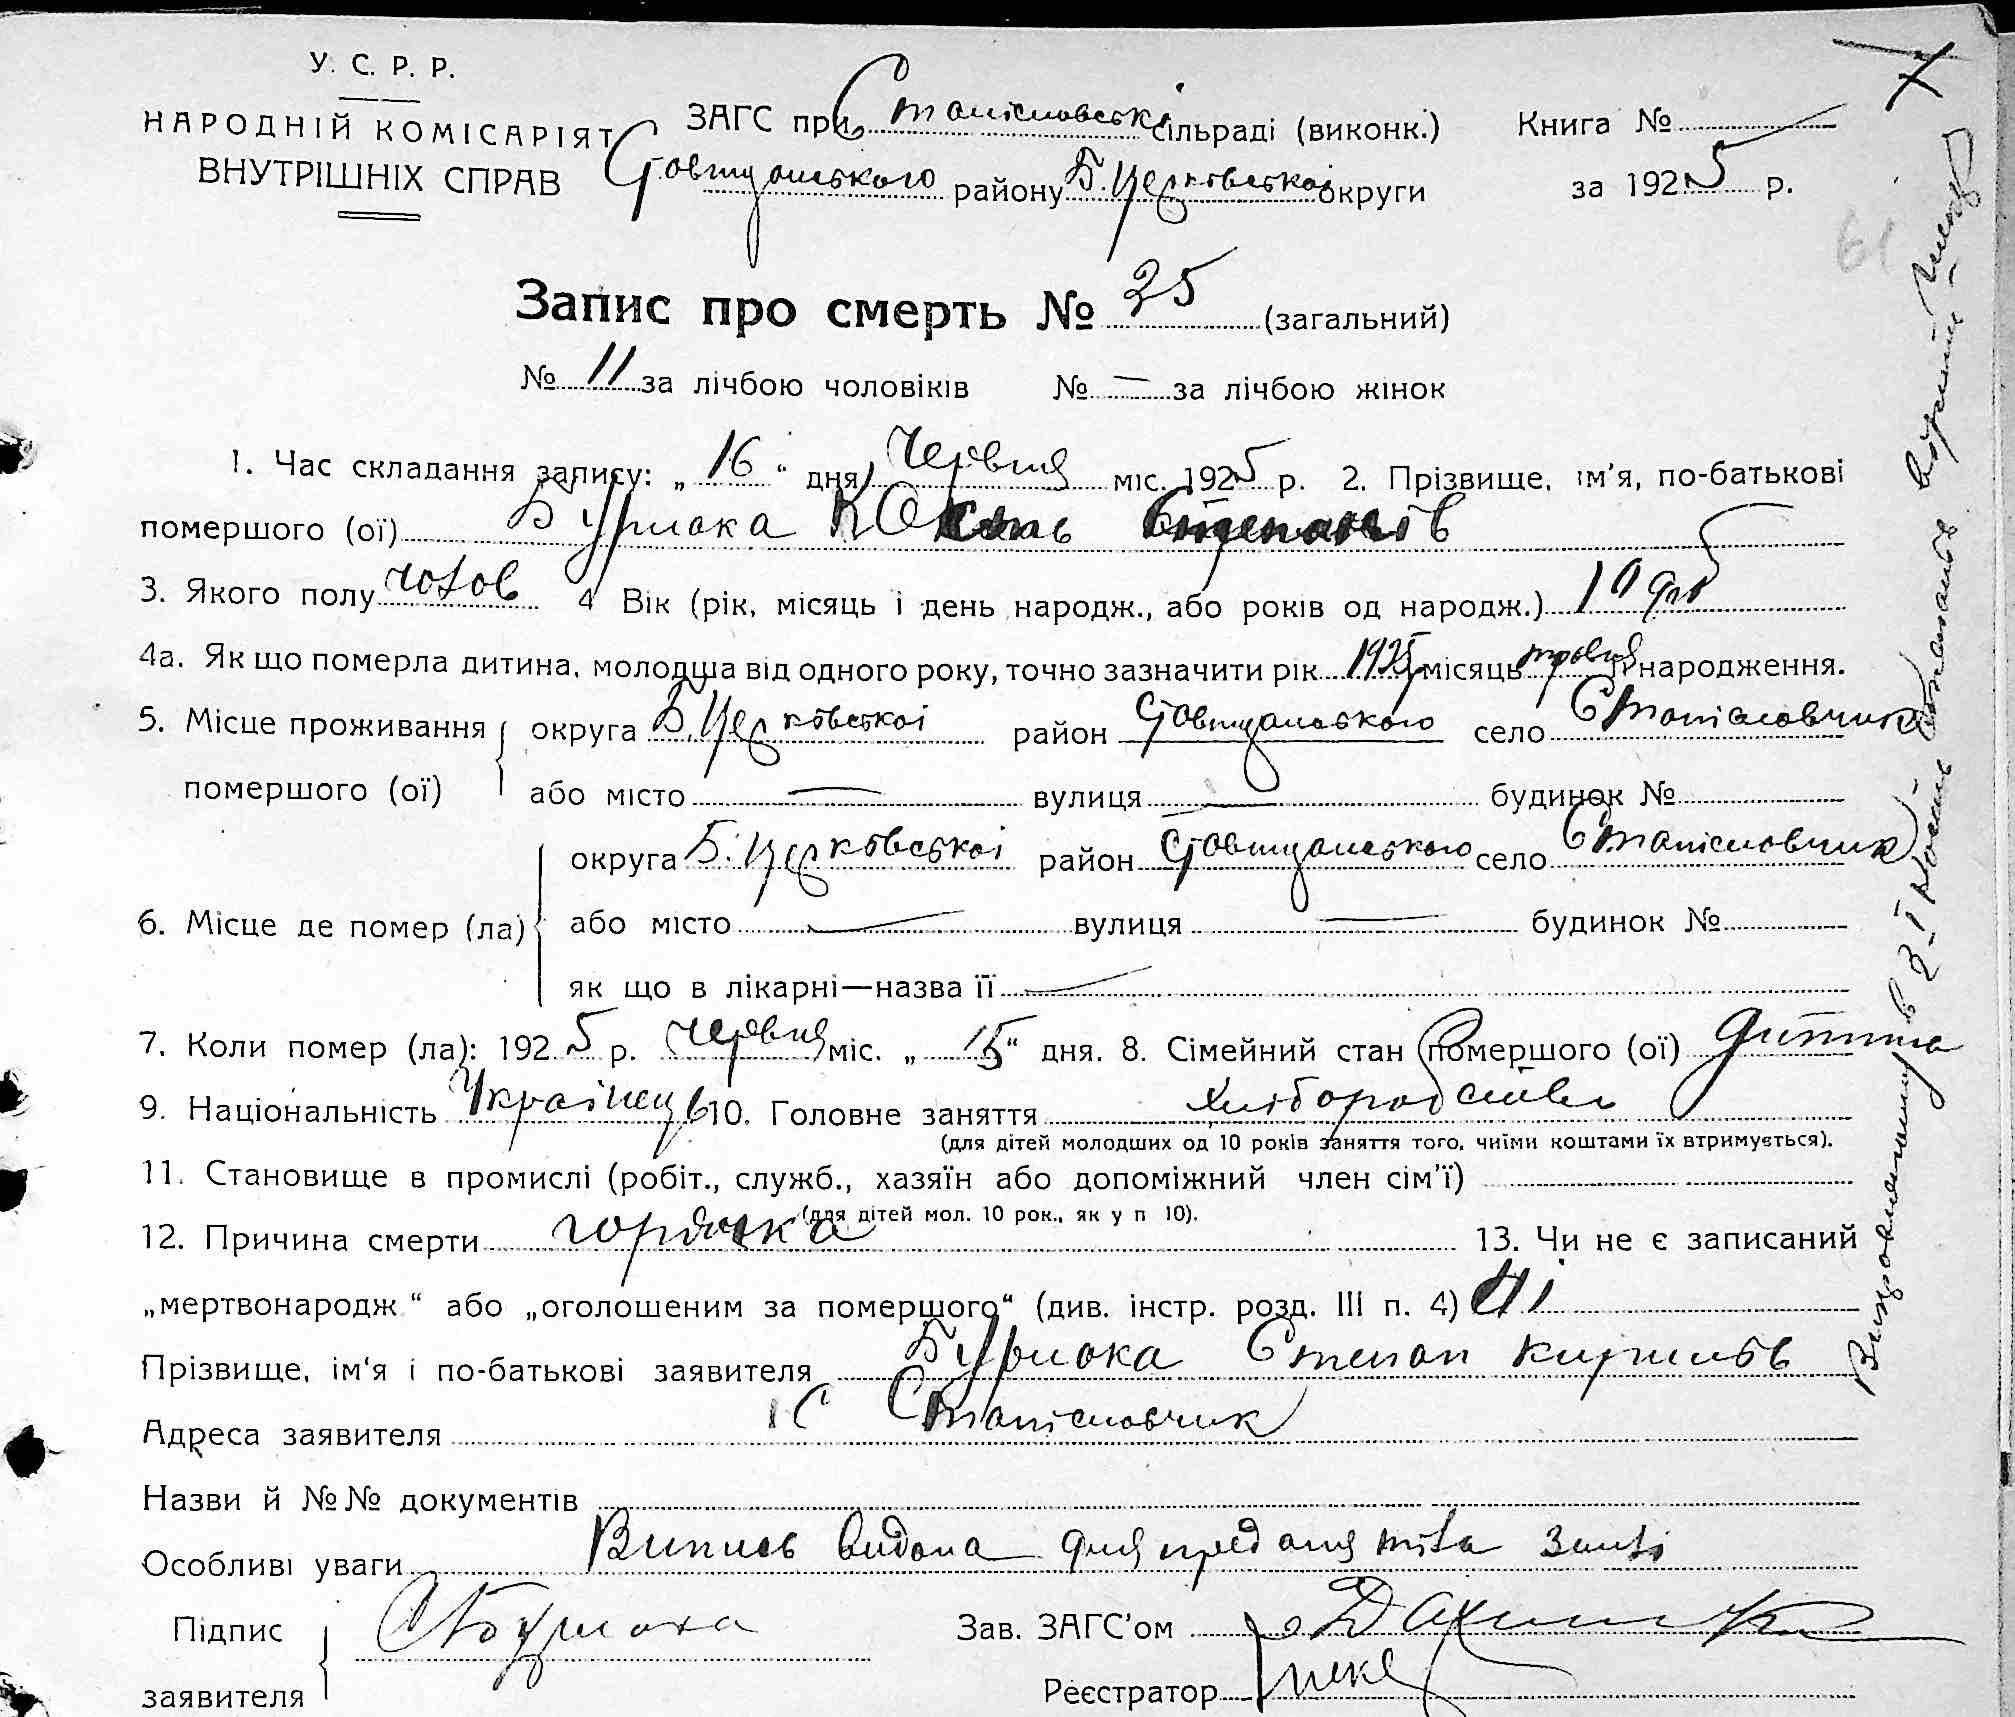 У. С. Р. Р.
НАРОДНІЙ КОМІСАРІЯТ
ВНУТРІШНІХ СПРАВ
ЗАГС при Станіславські сільраді (виконк.)
району Б. Церківської округи
Книга №
за 1925 р.
61
Запис про смерть № 25 (загальний)
№ 11 за лічбою чоловіків № — за лічбою жінок
1. Час складання запису: „ 16 “ дня Червня міс. 1925 р. 2. Прізвище, ім'я, по-батькові
помершого (ої) Бурлака Степанів
3. Якого полу чолов 4 Вік (рік, місяць і день народж., або років од народж.)
4а. Як що померла дитина, молодша від одного року, точно зазначити рік 1925 місяць травня її народження.
5. Місце проживання помершого (ої) округа Б. Церківської район село Станіславчик
або місто — вулиця — будинок №
6. Місце де помер (ла) округа Б. Церківської район село Станіславчик
або місто — вулиця — будинок №
як що в лікарні—назва її —
7. Коли помер (ла): 1925 р. Червня міс. „ 15 “ дня. 8. Сімейний стан помершого (ої) дитина
9. Національність Українець 10. Головне заняття Хліборобство
(для дітей молодших од 10 років заняття того, чиїми коштами їх втримується).
11. Становище в промислі (робіт., служб., хазяїн або допоміжний член сім'ї)
(для дітей мол. 10 рок., як у п 10).
12. Причина смерти горячка 13. Чи не є записаний
„мертвонародж.“ або „оголошеним за помершого“ (див. інстр. розд. III п. 4) Ні
Прізвище, ім'я і по-батькові заявителя Бурлака Степан Кирилів
Адреса заявителя с Станіславчик
Назви й №№ документів
Особливі уваги Випись видана для предання тіла землі
Підпис заявителя С Бурлака
Зав. ЗАГС'ом
Реєстратор